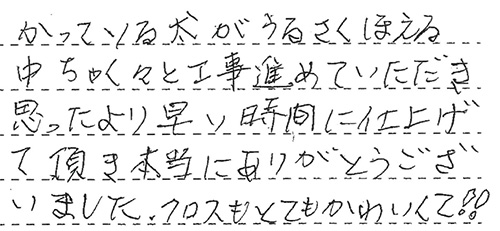 かっている犬がうるさくほえる
中ちゃく々と工事進めていただき
思ったより早い時間に仕上げ
て頂き本当にありがとうござ
いました、クロスもとてもかわいくて!!